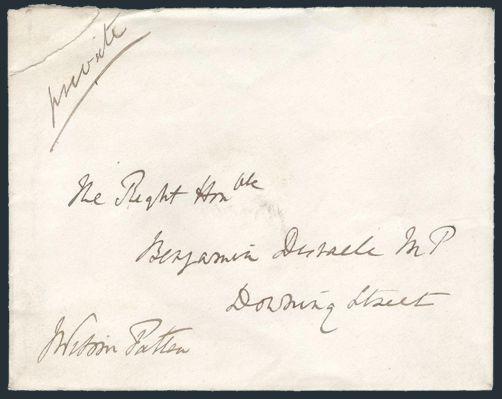 private
The Right Honble
Benjamin Disraeli MP
Downing Street
J Wilson Patten